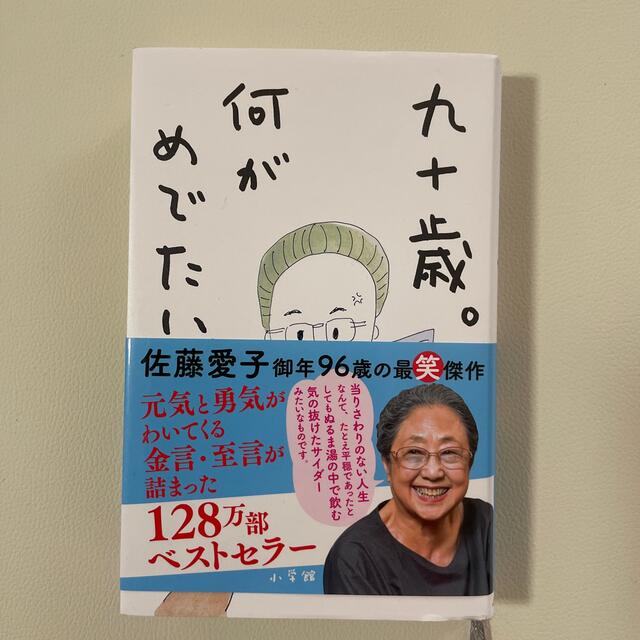 九十歳。
何が
めでたい
佐藤愛子 御年96歳の最笑傑作
元気と勇気が
わいてくる
金言・至言が
詰まった
128万部
ベストセラー
当りさわりのない人生
なんて、たとえ平穏であったと
してもぬるま湯の中で飲む
気の抜けたサイダー
みたいなものです。
小学館